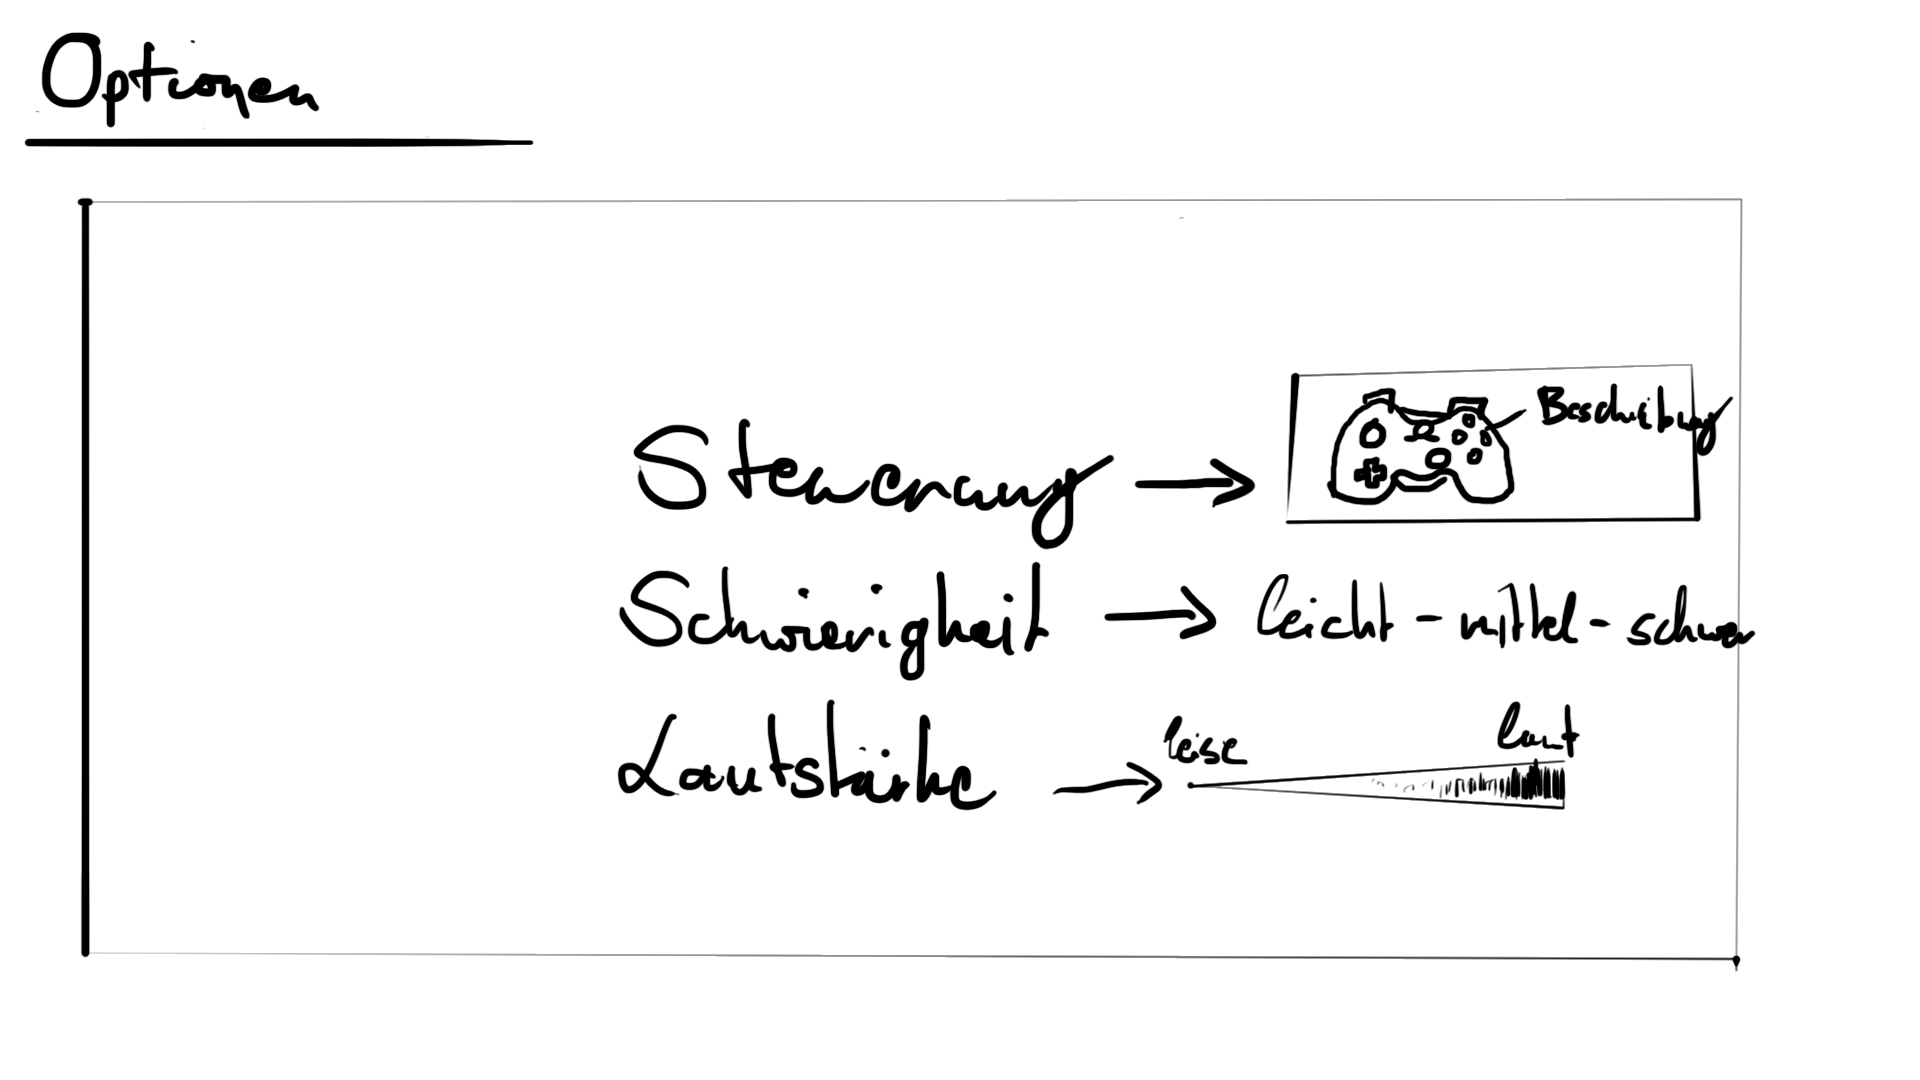 Optionen
Steuerung → Beschreibung
Schwierigkeit → leicht - mittel - schwer
Lautstärke → leise laut